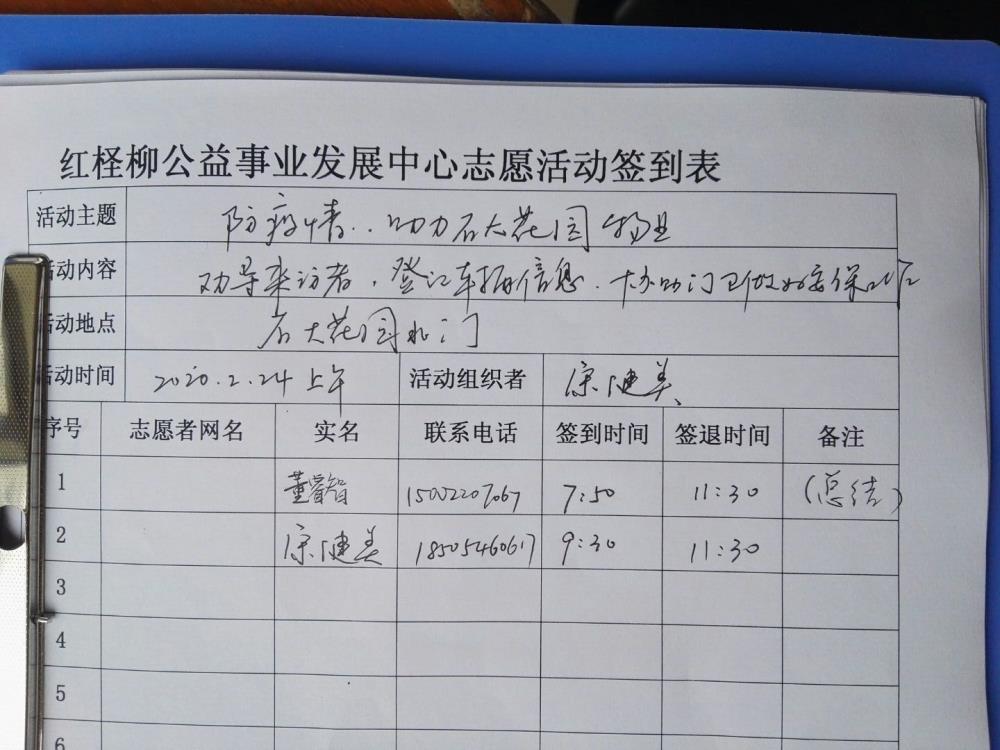 红柽柳公益事业发展中心志愿活动签到表
活动主题 防疫情..助力石大花园物业
活动内容 劝导来访者,登记车辆信息.协助门卫做好安保工作
活动地点 石大花园北门
活动时间 2020.2.24上午 活动组织者 宗健美
序号 志愿者网名 实名 联系电话 签到时间 签退时间 备注
1 董睿智 7:50 11:30 (总结)
2 宗健美 18505460617 9:30 11:30
3
4
5
6